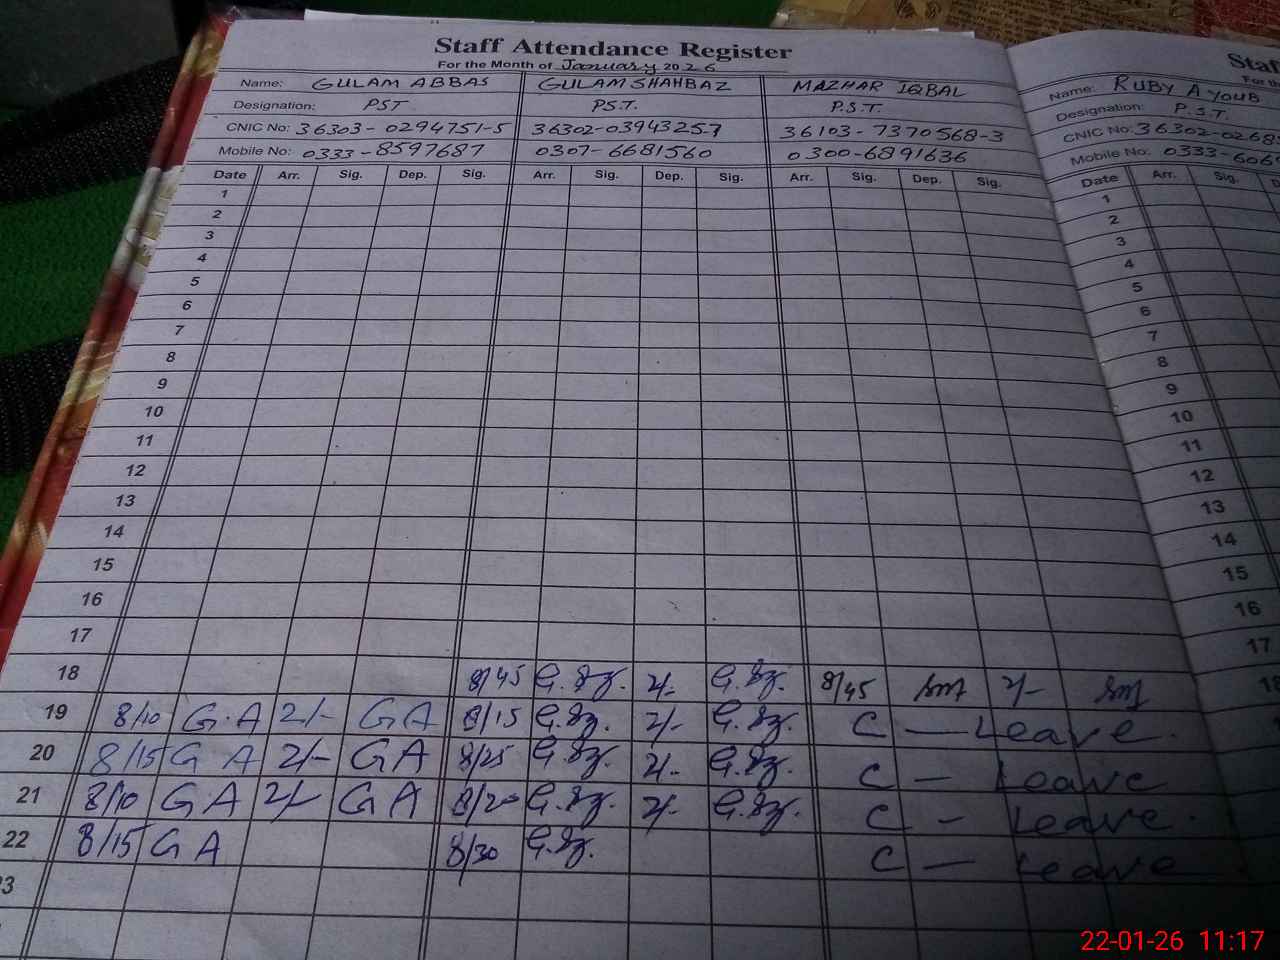 Staff Attendance Register
For the Month of January 2026
Name: GULAM ABBAS GULAM SHAHBAZ MAZHAR IQBAL
Designation: PST PST. P.S.T.
CNIC No: 36303-0294751-5 36302-0394325-7 36103-7370568-3
Mobile No: 0333-8597687 0307-6681560 0300-6891636
Date Arr. Sig. Dep. Sig. Arr. Sig. Dep. Sig. Arr. Sig. Dep. Sig.
1
2
3
4
5
6
7
8
9
10
11
12
13
14
15
16
17
18 8/45 G.Sz. 2/- G.Sz. 8/45 2/-
19 8/10 G.A 2/- GA 8/15 G.Sz. 2/- G.Sz. C — Leave.
20 8/15 G A 2/- GA 8/25 G.Sz. 2/- G.Sz. C — Leave
21 8/10 G A 2/- G A 8/20 G.Sz. 2/- G.Sz. C - Leave.
22 8/15 G A 8/30 G.Sz. C — Leave
Name: RUBY AYOUB
Designation: P.S.T.
CNIC No: 36302-0268
Mobile No: 0333-606
Date Arr. Sig.
1
2
3
4
5
6
7
8
9
10
11
12
13
14
15
16
17
22-01-26 11:17